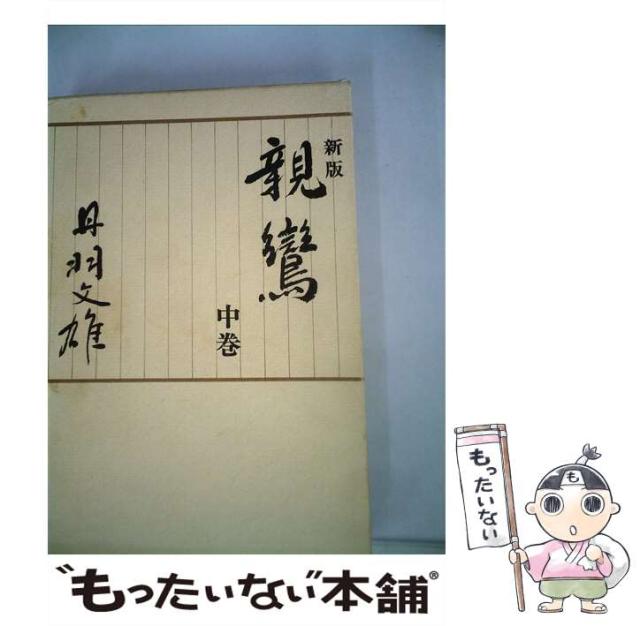 新版
親鸞
中巻
丹羽文雄
もったいない
も
"もったいない"本舗®